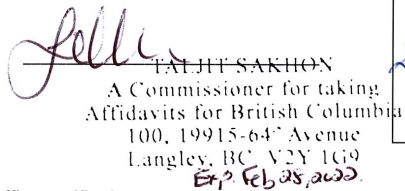 TALJIT SAKHON
A Commissioner for taking
Affidavits for British Columbia
100, 19915-64th Avenue
Langley, BC V2Y 1G9
Exp. Feb 28, 2022.